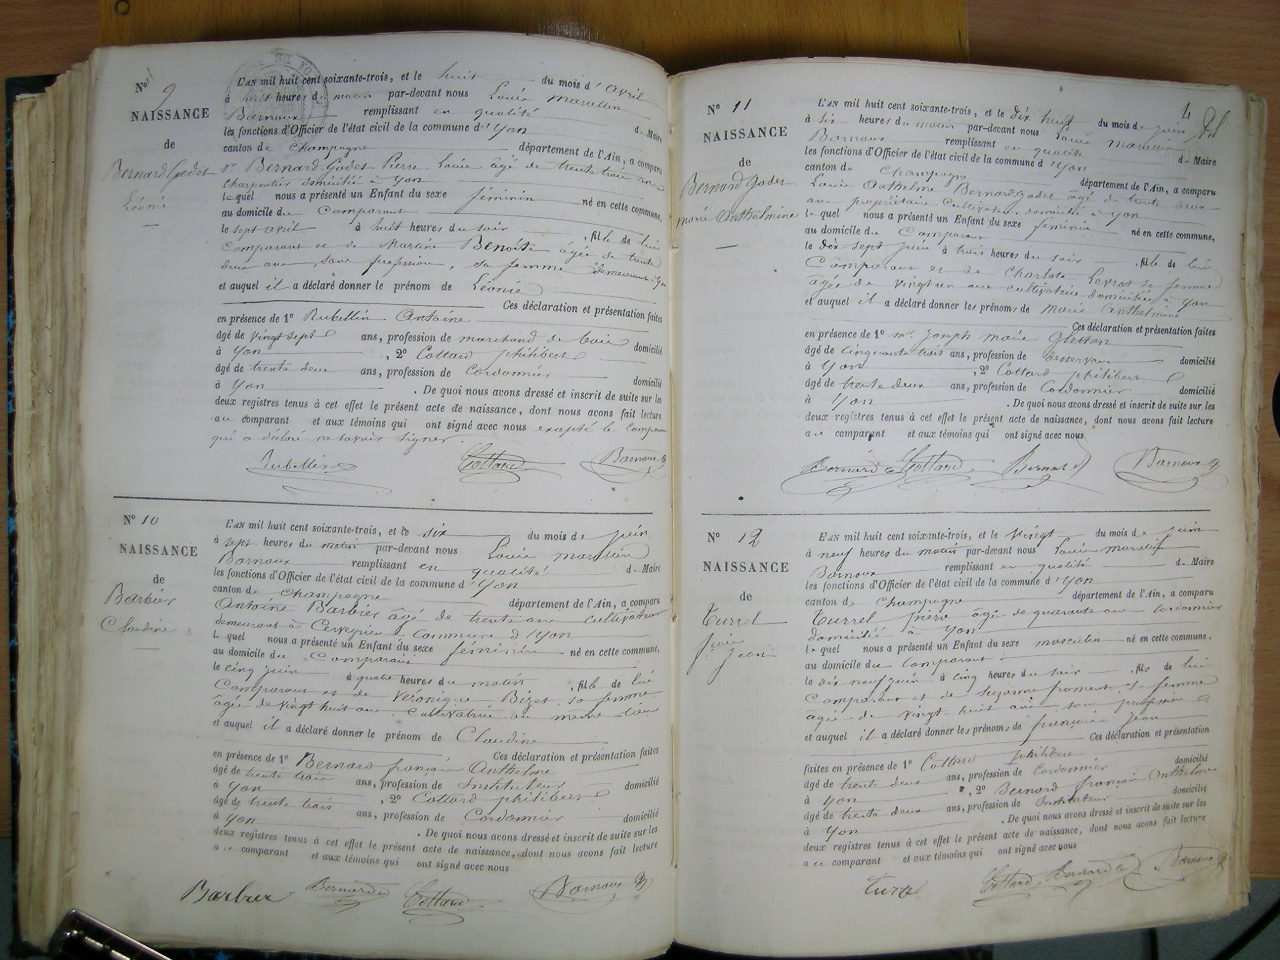 N° 9
NAISSANCE
de
Bernard Godet
Léonie
L'AN mil huit cent soixante-trois, et le huit du mois d'avril
à huit heures du matin par-devant nous Louis Marcellin
Barnoux remplissant en qualité de Maire
les fonctions d'Officier de l'état civil de la commune d'Yon
canton de Champagne département de l'Ain, a comparu
Sr Bernard Godet Pierre Louis âgé de trente trois ans
charpentier domicilié à Yon
lequel nous a présenté un Enfant du sexe féminin né en cette commune,
au domicile du Comparant
le sept avril à huit heures du soir, fille de lui
Comparant et de Benoîte âgée de trente
deux ans, sans profession, sa femme
et auquel il a déclaré donner le prénom de Léonie
Ces déclaration et présentation faites
en présence de 1° Rubellin Antoine
âgé de vingt sept ans, profession de marchand de bois domicilié
à Yon, 2° Cottard philibert
âgé de trente deux ans, profession de Cordonnier domicilié
à Yon. De quoi nous avons dressé et inscrit de suite sur les
deux registres tenus à cet effet le présent acte de naissance, dont nous avons fait lecture
au comparant et aux témoins qui ont signé avec nous excepté le comparant
qui a déclaré ne savoir signer.
Rubellin Cottard Barnoux
N° 10
NAISSANCE
de
Barbier
Claudine
L'AN mil huit cent soixante-trois, et le six du mois de juin
à sept heures du matin par-devant nous Louis Marcellin
Barnoux remplissant en qualité de Maire
les fonctions d'Officier de l'état civil de la commune d'Yon
canton de Champagne département de l'Ain, a comparu
Antoine Barbier âgé de trente ans cultivateur
demeurant à Cerveyrieu Commune d'Yon
lequel nous a présenté un Enfant du sexe féminin né en cette commune,
au domicile du Comparant
le cinq juin à quatre heures du matin, fille de lui
Comparant et de Véronique Bizet sa femme
âgée de vingt huit ans Cultivatrice au même lieu
et auquel il a déclaré donner le prénom de Claudine
Ces déclaration et présentation faites
en présence de 1° Bernard françois Anthelme
âgé de trente trois ans, profession Instituteur domicilié
à Yon, 2° Cottard philibert
âgé de trente trois ans, profession de Cordonnier domicilié
à Yon. De quoi nous avons dressé et inscrit de suite sur les
deux registres tenus à cet effet le présent acte de naissance, dont nous avons fait lecture
a ce comparant et aux témoins qui ont signé avec nous
Barbier Bernard Cottard Barnoux
4
N° 11
NAISSANCE
de
Bernard Godet
Marie Anthelmine
L'AN mil huit cent soixante-trois, et le dix huit du mois de juin
à six heures du matin par-devant nous Louis Marcellin
Barnoux remplissant en qualité de Maire
les fonctions d'Officier de l'état civil de la commune d'Yon
canton de Champagne département de l'Ain, a comparu
Louis Anthelme Bernard Godet âgé de trente trois
ans propriétaire Cultivateur domicilié à Yon
lequel nous a présenté un Enfant du sexe féminin né en cette commune,
au domicile du Comparant
le dix sept juin à trois heures du soir, fille de lui
Comparant et de Charlotte sa femme
âgée de vingt un ans cultivatrice domiciliée à Yon
et auquel il a déclaré donner les prénoms de Marie Anthelmine
Ces déclaration et présentation faites
en présence de 1° Mr Joseph Marie
âgé de cinquante trois ans, profession de domicilié
à Yon, 2° Cottard philibert
âgé de trente deux ans, profession de Cordonnier domicilié
à Yon. De quoi nous avons dressé et inscrit de suite sur les
deux registres tenus à cet effet le présent acte de naissance, dont nous avons fait lecture
au comparant et aux témoins qui ont signé avec nous
Cottard Bernard Barnoux
N° 12
NAISSANCE
de
Turrel
Jean
L'AN mil huit cent soixante-trois, et le vingt du mois de juin
à neuf heures du matin par-devant nous Louis Marcellin
Barnoux remplissant en qualité de Maire
les fonctions d'Officier de l'état civil de la commune d'Yon
canton de Champagne département de l'Ain, a comparu
Turrel pierre âgé de quarante ans cordonnier
domicilié à Yon
lequel nous a présenté un Enfant du sexe masculin né en cette commune,
au domicile du Comparant
le dix neuf juin à cinq heures du soir, fils de lui
Comparant et de Suzanne froment sa femme
âgée de vingt-huit ans sans profession
et auquel il a déclaré donner les prénoms de françois Jean
Ces déclaration et présentation
faites en présence de 1° Cottard philibert
âgé de trente deux ans, profession de Cordonnier domicilié
à Yon, 2° Bernard françois Anthelme
âgé de trente deux ans, profession de Instituteur domicilié
à Yon. De quoi nous avons dressé et inscrit de suite sur les
deux registres tenus à cet effet le présent acte de naissance, dont nous avons fait lecture
a ce comparant et aux témoins qui ont signé avec nous
Turel Cottard Bernard Barnoux